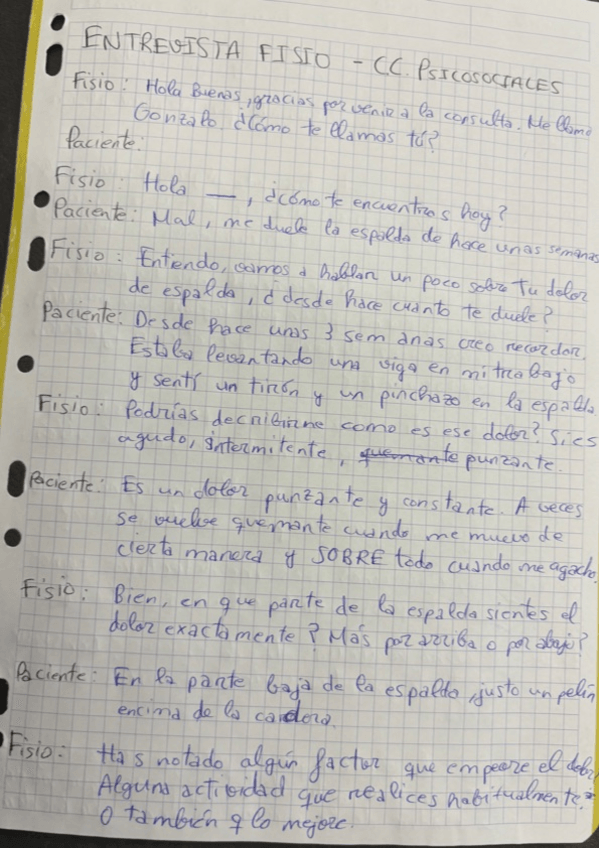 ENTREVISTA FISIO - CC. PSICOSOCIALES
Fisio: Hola Buenas, gracias por venir a la consulta. Me llamo
Gonzalo. ¿Cómo te llamas tú?
Paciente:
Fisio: Hola —, ¿cómo te encuentras hoy?
Paciente: Mal, me duele la espalda de hace unas semanas
Fisio: Entiendo, vamos a hablar un poco sobre Tu dolor
de espalda, ¿desde hace cuánto te duele?
Paciente: Desde hace unas 3 semanas creo recordar.
Estaba levantando una viga en mi trabajo
y sentí un tirón y un pinchazo en la espalda
Fisio: Podrías decribirme como es ese dolor? Si es
agudo, intermitente, quemante punzante.
Paciente: Es un dolor punzante y constante. A veces
se vuelve quemante cuando me muevo de
cierta manera y SOBRE todo cuando me agacho.
Fisio: Bien, en que parte de la espalda sientes el
dolor exactamente? Más por arriba o por abajo?
Paciente: En la parte baja de la espalda, justo un pelín
encima de la cadera.
Fisio: Has notado algún factor que empeore el dolor
Alguna actividad que realices habitualmente?
O también q lo mejore.